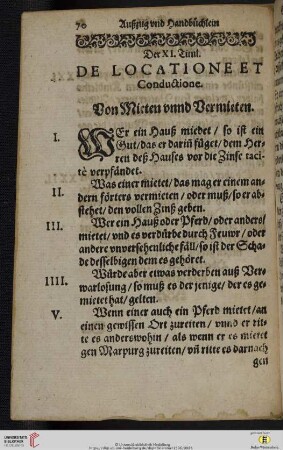 70 Außzug vnd Handbüchlein
Der XI. Titul.
DE LOCATIONE ET
Conductione.
Von Mieten vnnd Vermieten.
I. WEr ein Hauß miedet / so ist ein
Gut / das er darin̄ füget / dem Her-
ren deß Hauses vor die Zinse taci-
tè verpfändet.
II. Was einer mietet / das mag er einem an-
dern förters vermieten / oder muß / so er ab-
stehet / den vollen Zinß geben.
III. Wer ein Hauß oder Pferd / oder anders /
mietet / vnd es verdürbe durch Feuwr / oder
andere vnversehenliche fäll / so ist der Scha-
de desselbigen dem es gehöret.
IIII. Würde aber etwas verderben auß Ver-
warlosung / so muß es der jenige / der es ge-
mietet hat / gelten.
V. Wenn einer auch ein Pferd mietet / an
einen gewissen Ort zureiten / vnnd er rit-
te es anderswohin / als wenn er es mietet
gen Marpurg zureiten / vn̄ ritte es darnach
gen